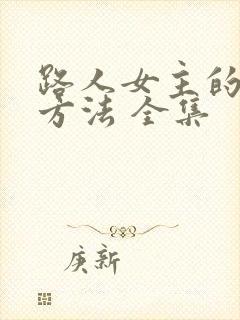 路人女主的
方法 全集
庚新